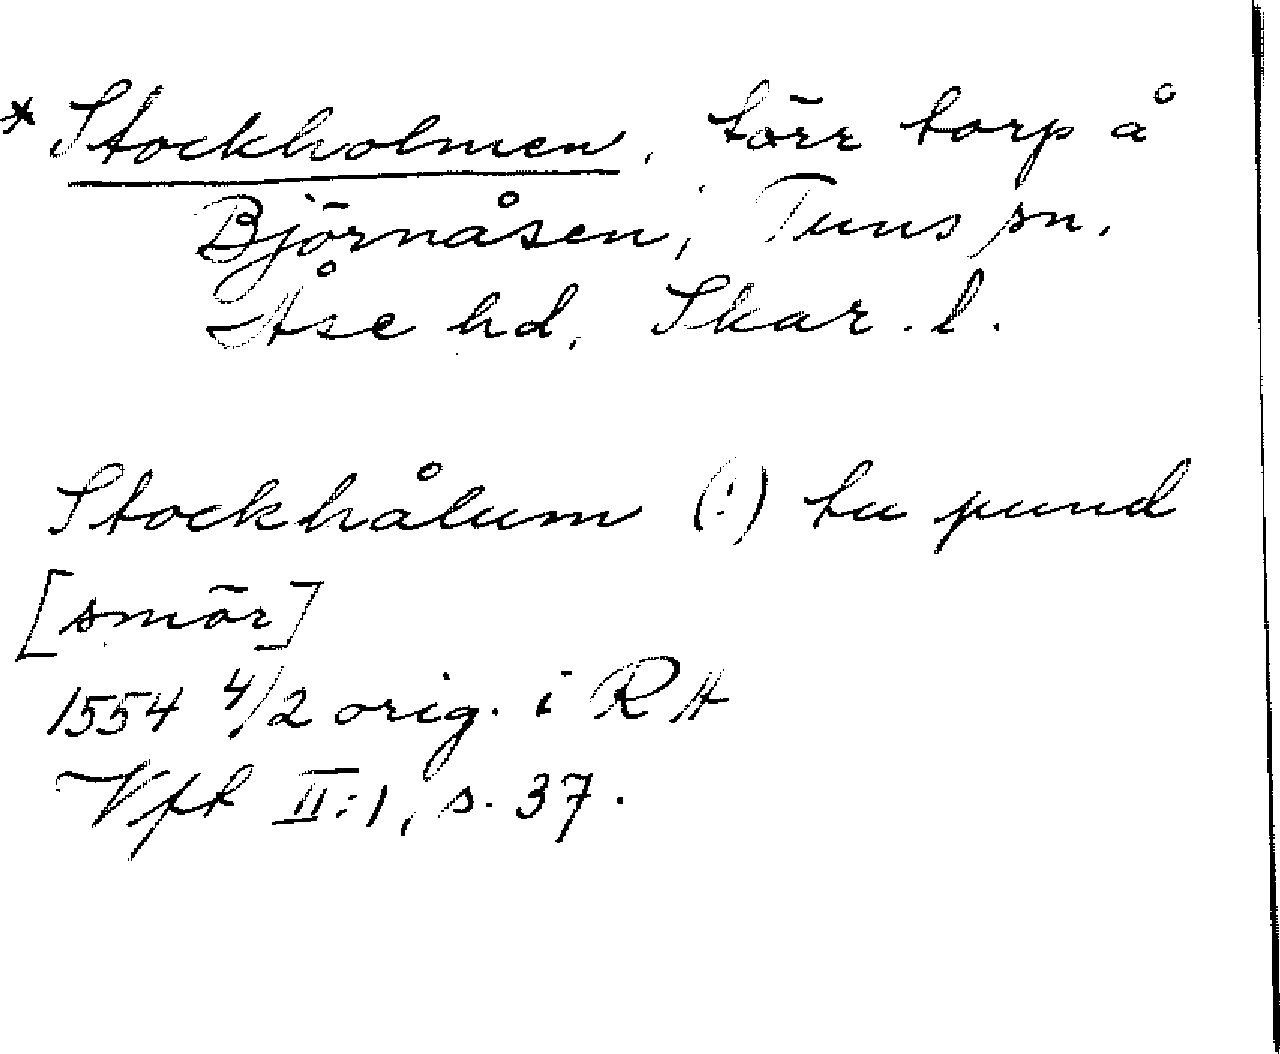 * Stockholmen, förr torp å
Björnåsen, Tuns sn.
Åse hd, Skar. l.
Stockhålum (!) tu pund
[smör]
1554 4/2 orig. i RA
Vfr II:1, s. 37.